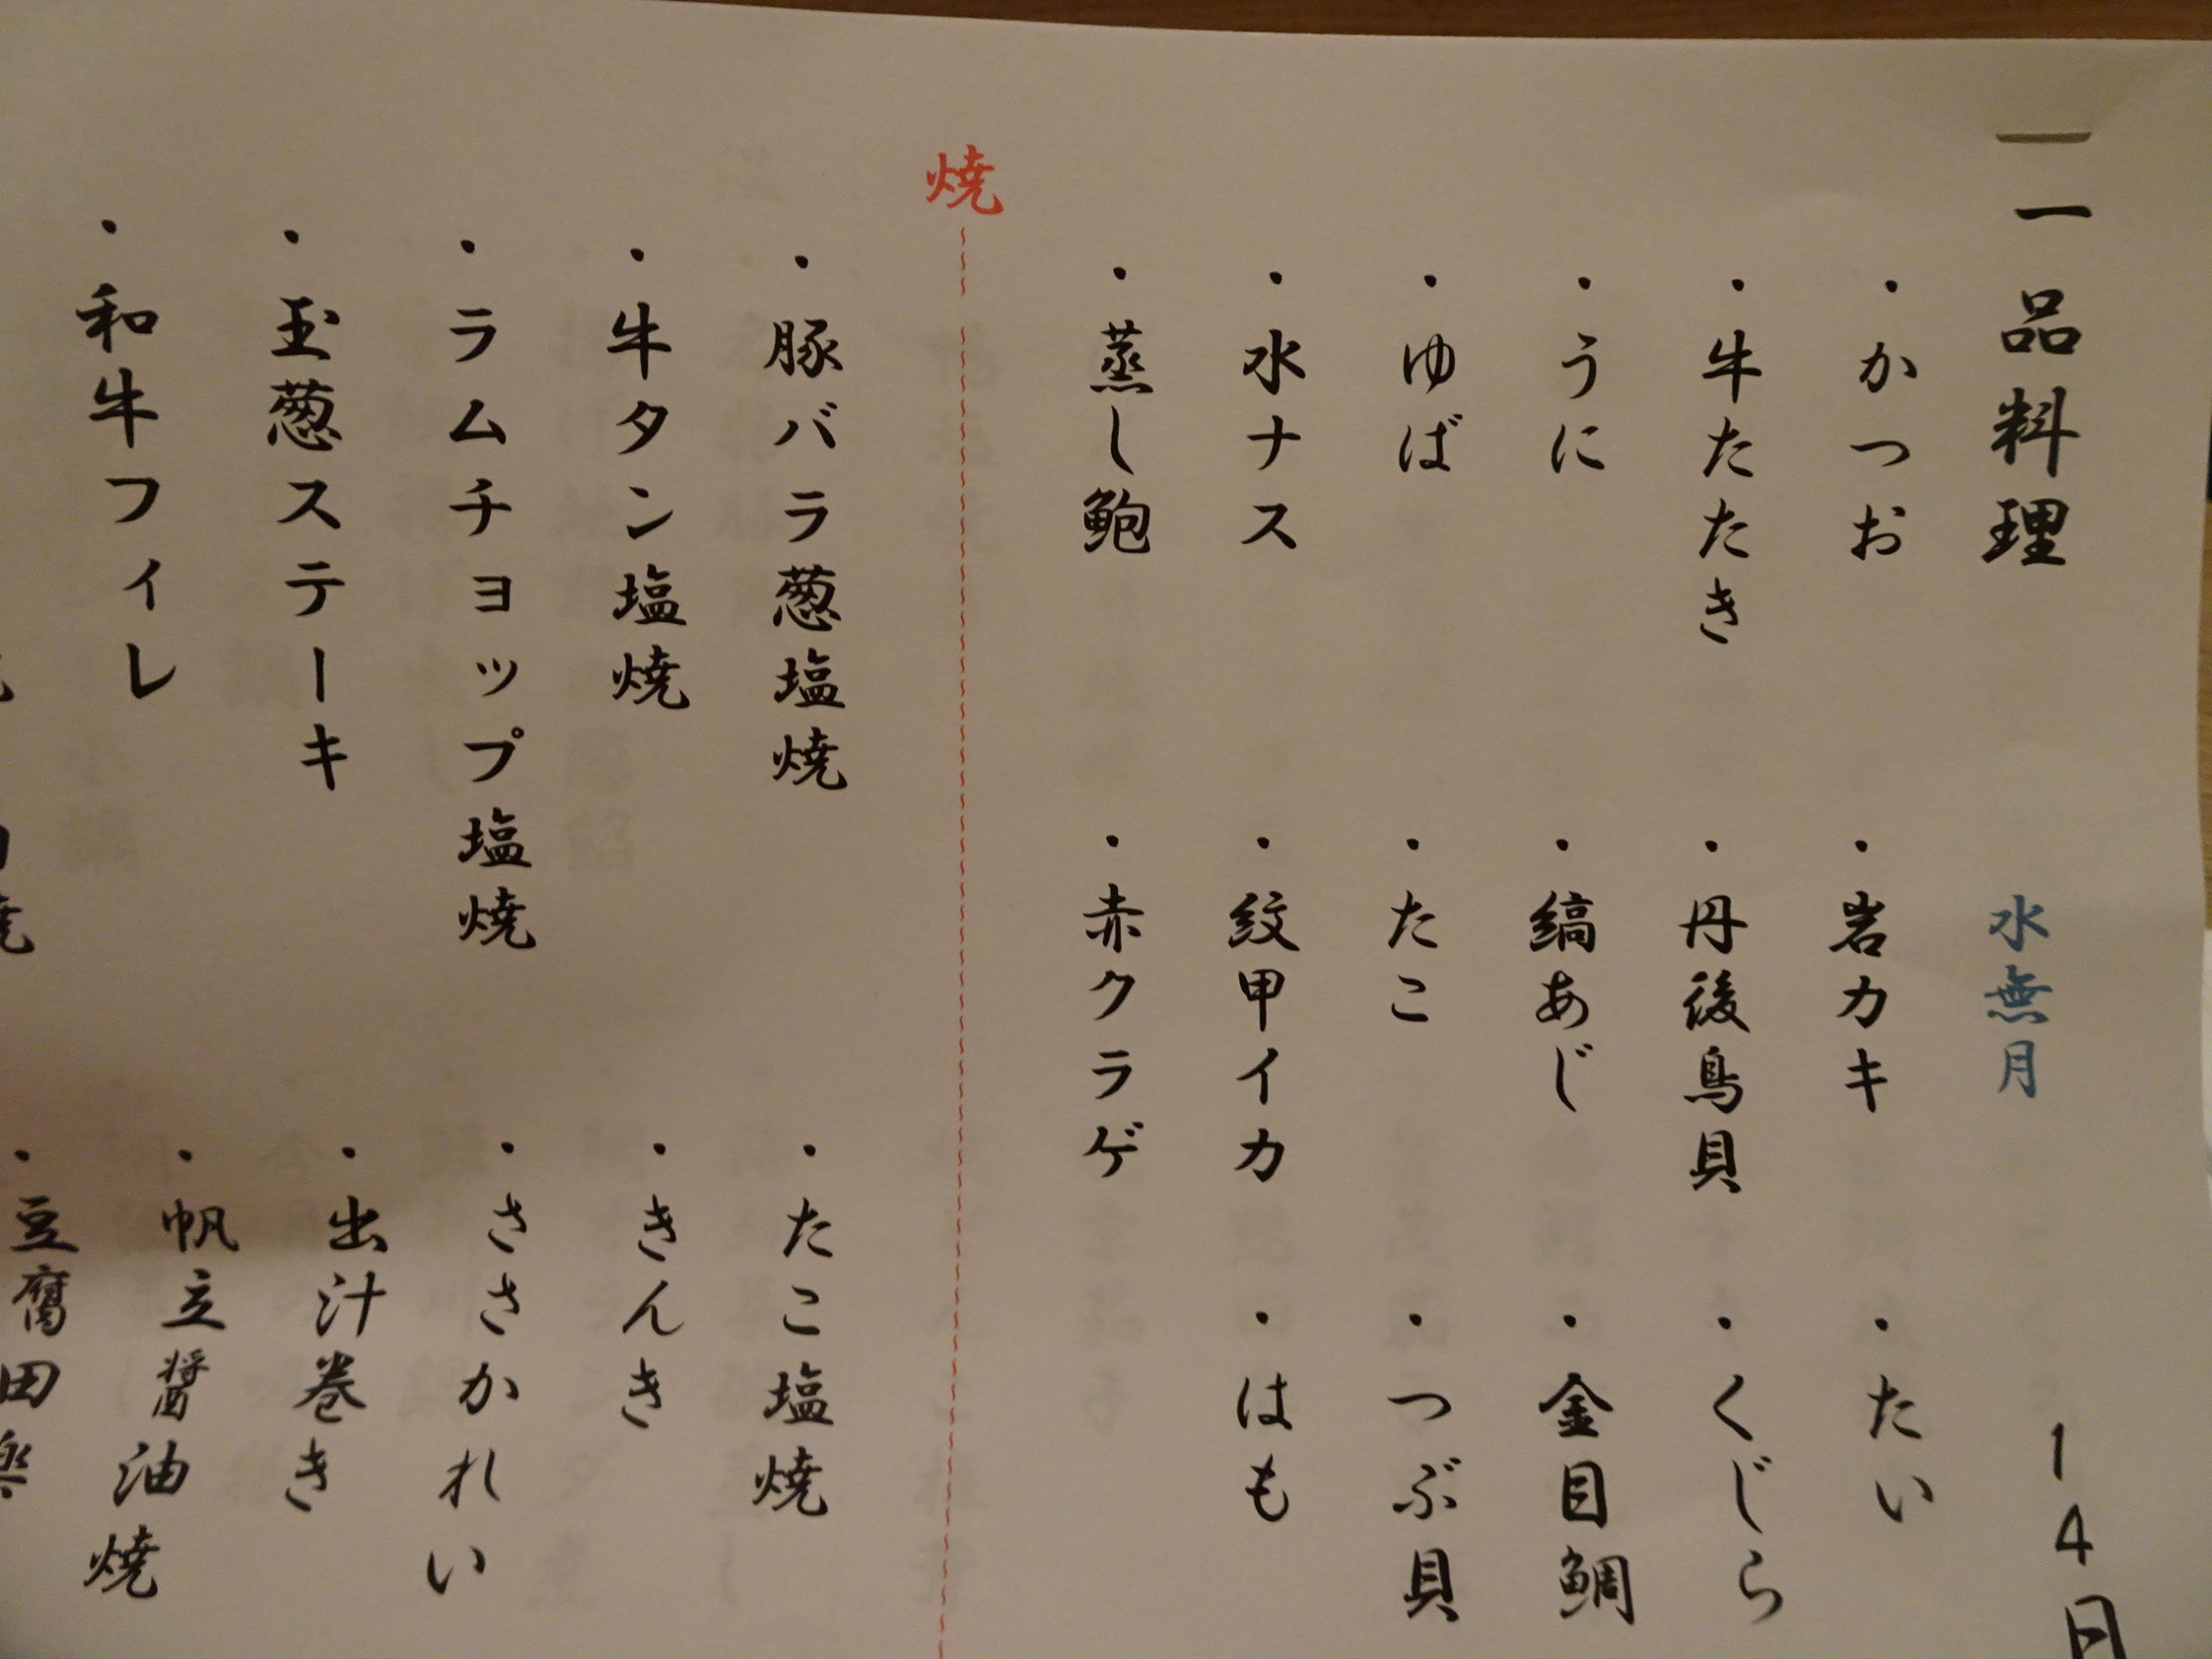 一品料理
水無月
14日
・かつお
・岩カキ
・たい
・牛たたき
・丹後鳥貝
・くじら
・うに
・縞あじ
・金目鯛
・ゆば
・たこ
・つぶ貝
・水ナス
・紋甲イカ
・はも
・蒸し鮑
・赤クラゲ
焼
・豚バラ葱塩焼
・たこ塩焼
・牛タン塩焼
・きんき
・ラムチョップ塩焼
・ささかれい
・玉葱ステーキ
・出汁巻き
・和牛フィレ
・帆立醤油焼
・豆腐田楽